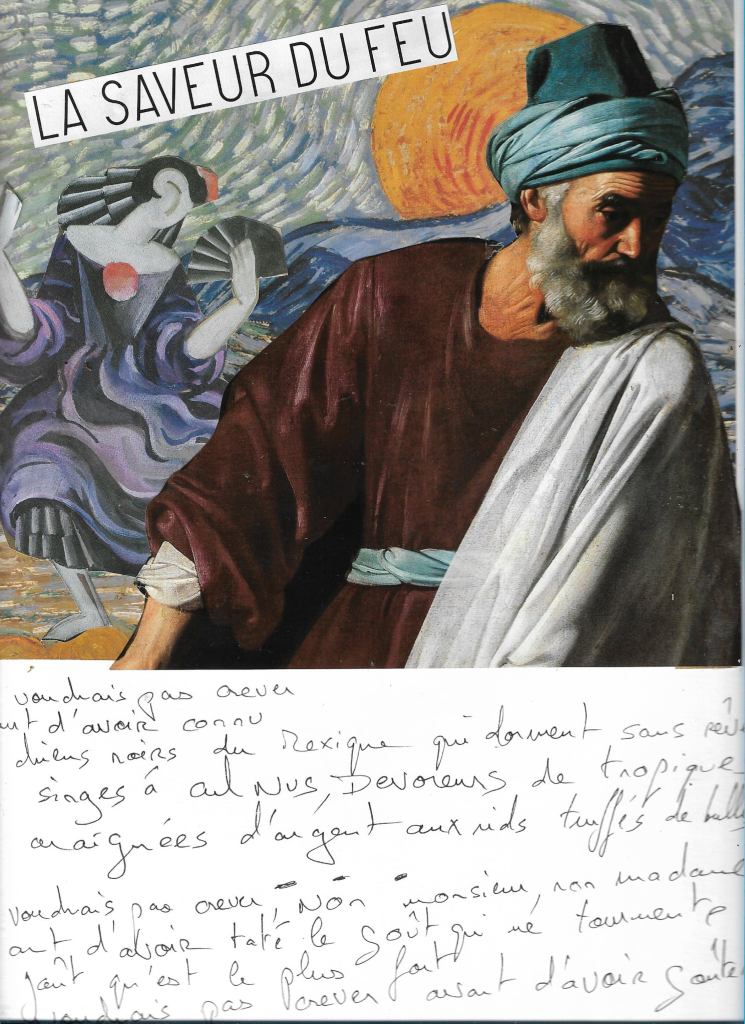 LA SAVEUR DU FEU
voudrais pas crever
ant d'avoir connu
chiens noirs du Mexique qui dorment sans rêv
singes à cul NUS, Devoreurs de tropique
araignées d'argent aux nids truffés de bull
voudrais pas crever, Non monsieur, non madame
ant d'avoir taté le goût qui me tourmente
goût qu'est le plus fort
voudrais pas crever avant d'avoir goûte